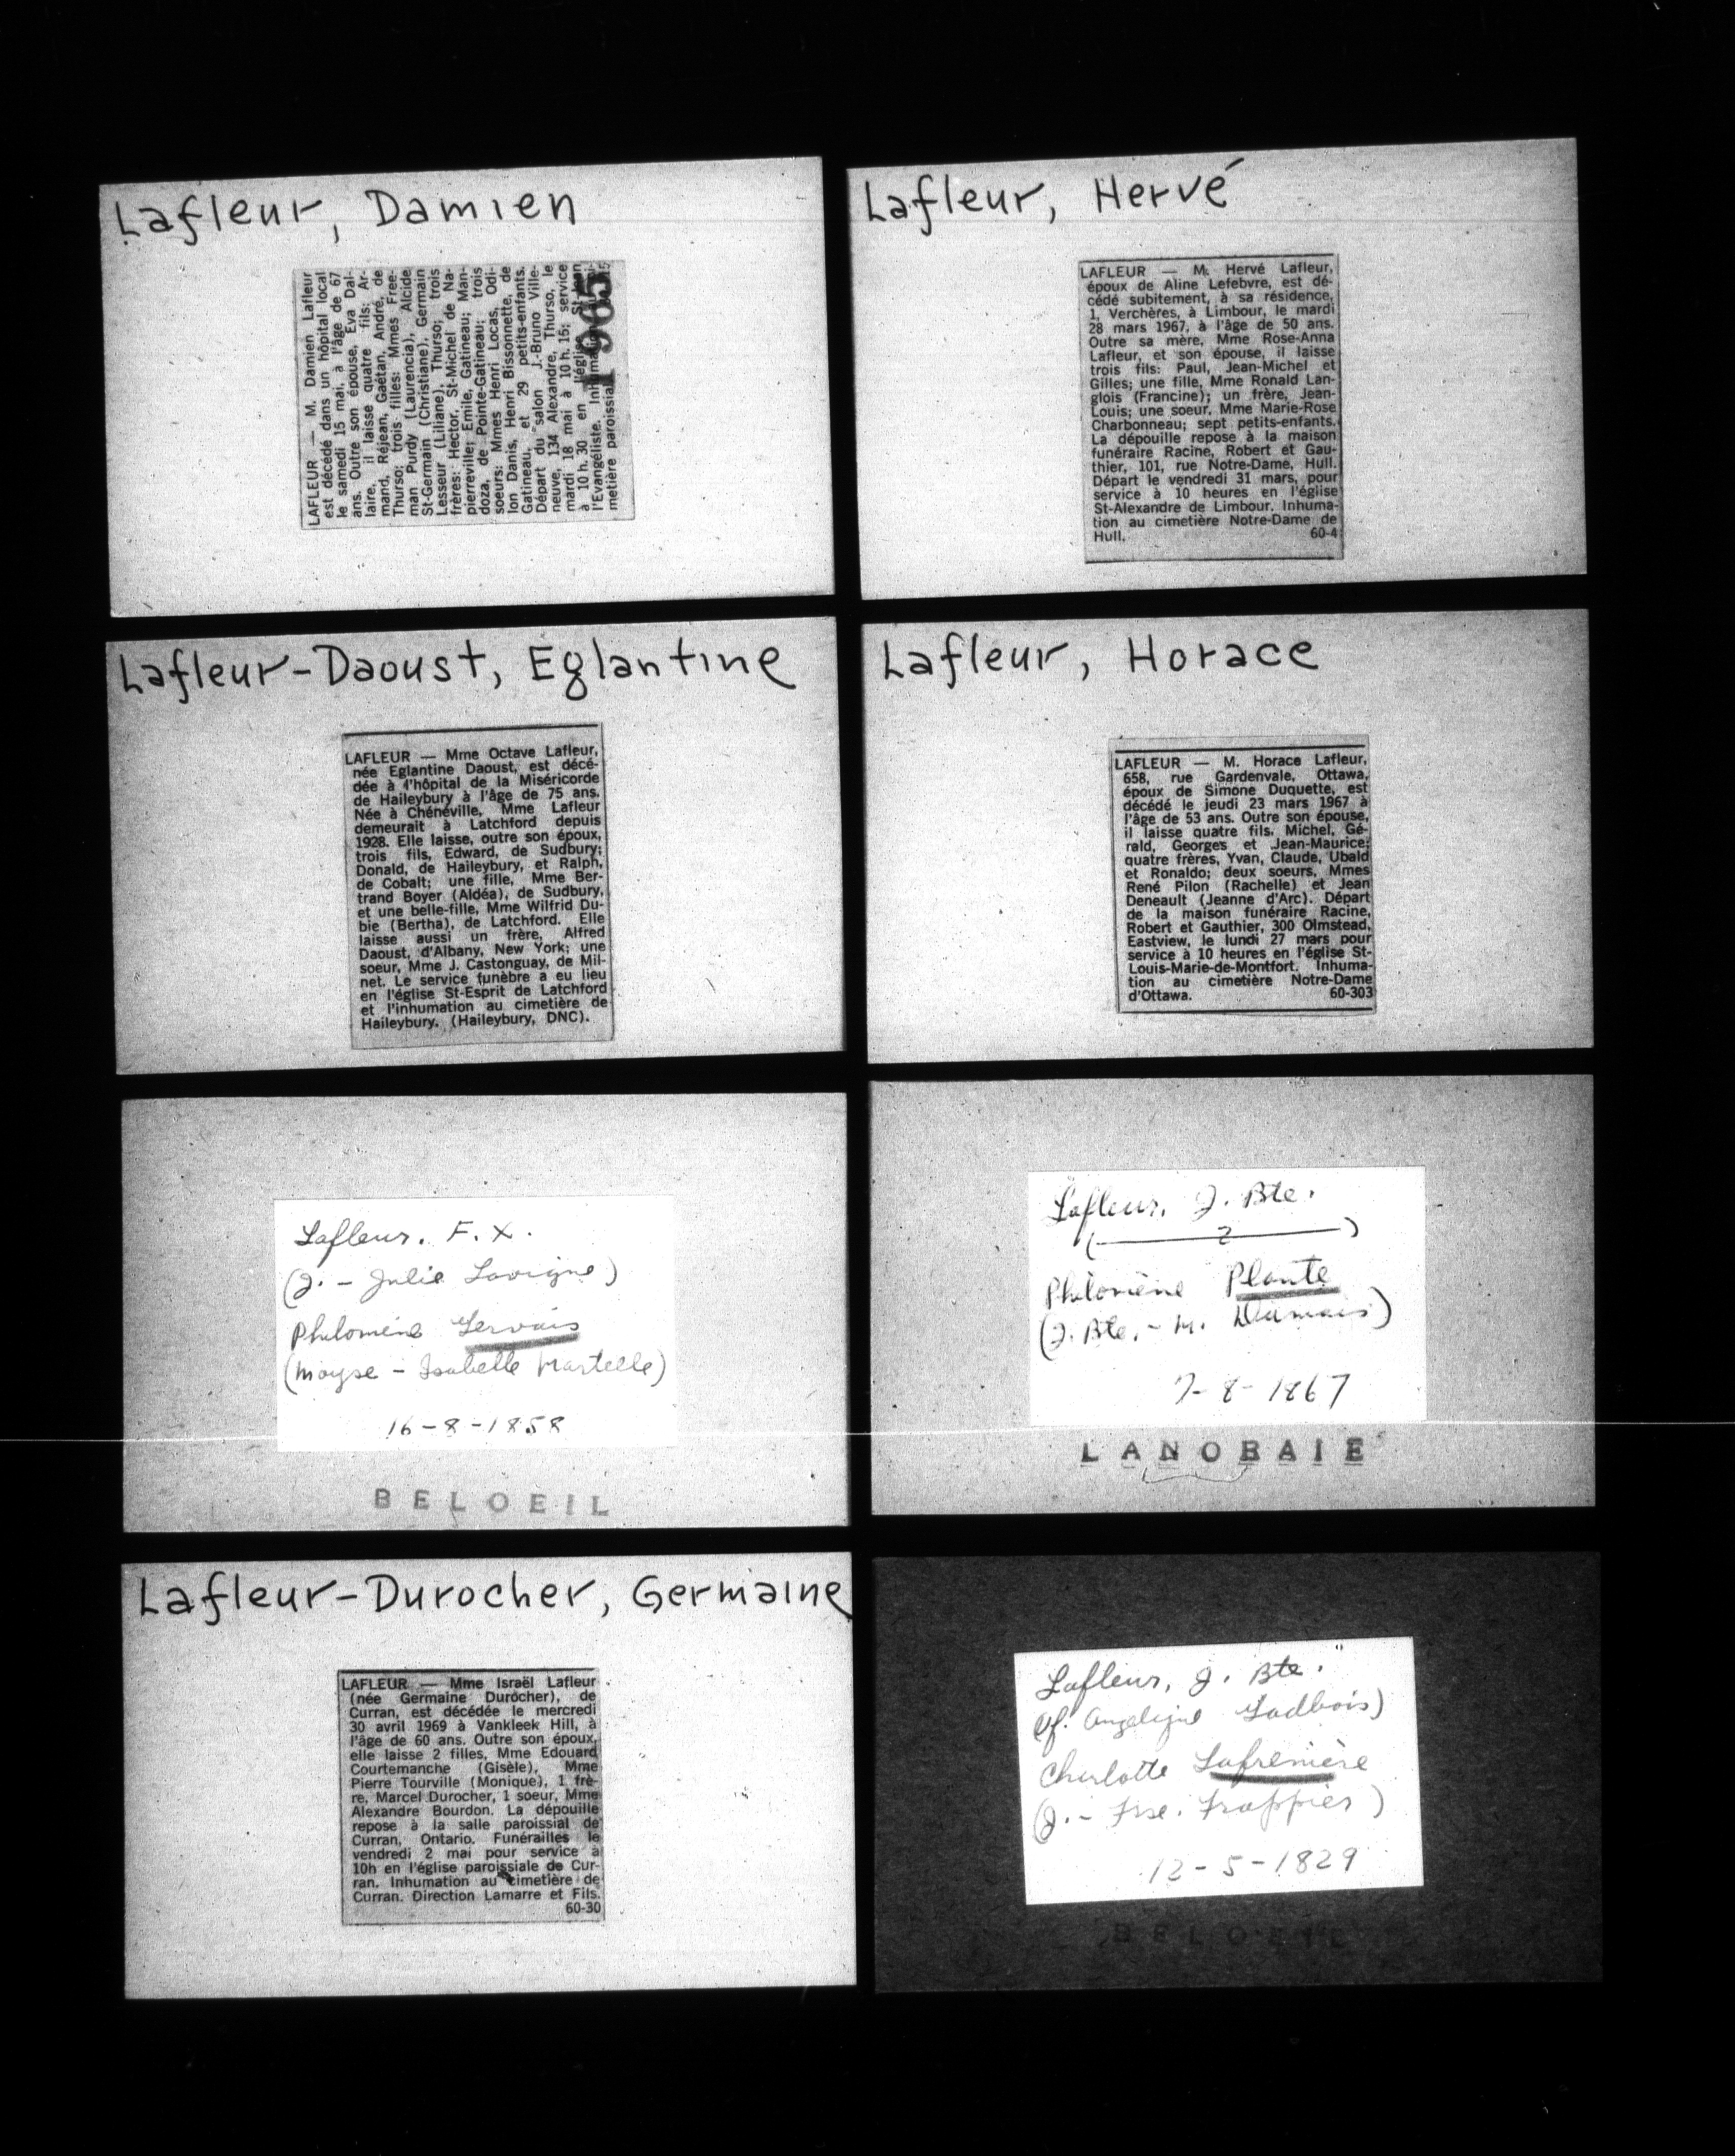 Lafleur, Damien
LAFLEUR — M. Damien Lafleur
est décédé dans un hôpital local
le samedi 15 mai, à l'âge de 67
ans. Outre son épouse, Eva Dal-
laire, il laisse quatre fils: Ar-
mand, Réjean, Gaétan, André, de
Thurso; trois filles: Mmes Free-
man Purdy (Laurencia), Alcide
St-Germain (Christiane), Germain
Lesseur (Liliane), Thurso; trois
frères: Hector, St-Michel de Na-
pierreville; Emile, Gatineau; Man-
doza, de Pointe-Gatineau; trois
soeurs: Mmes Henri Locas, Odi-
lon Danis, Henri Bissonnette, de
Gatineau, et 29 petits-enfants.
Départ du salon J.-Bruno Ville-
neuve, 134 Alexandre, Thurso, le
mardi 18 mai à 10 h. 15; service
à 10 h. 30 en l'église St-Jean
l'Evangéliste.
metière paroissial
1965
Lafleur, Hervé
LAFLEUR — M. Hervé Lafleur,
époux de Aline Lefebvre, est dé-
cédé subitement, à sa résidence,
1, Verchères, à Limbour, le mardi
28 mars 1967, à l'âge de 50 ans.
Outre sa mère, Mme Rose-Anna
Lafleur, et son épouse, il laisse
trois fils: Paul, Jean-Michel et
Gilles; une fille, Mme Ronald Lan-
glois (Francine); un frère, Jean-
Louis; une soeur, Mme Marie-Rose
Charbonneau; sept petits-enfants.
La dépouille repose à la maison
funéraire Racine, Robert et Gau-
thier, 101, rue Notre-Dame, Hull.
Départ le vendredi 31 mars, pour
service à 10 heures en l'église
St-Alexandre de Limbour. Inhuma-
tion au cimetière Notre-Dame de
Hull. 60-4
Lafleur-Daoust, Eglantine
LAFLEUR — Mme Octave Lafleur,
née Eglantine Daoust, est décé-
dée à l'hôpital de la Miséricorde
de Haileybury à l'âge de 75 ans.
Née à Chénéville, Mme Lafleur
demeurait à Latchford depuis
1928. Elle laisse, outre son époux,
trois fils, Edward, de Sudbury;
Donald, de Haileybury, et Ralph,
de Cobalt; une fille, Mme Ber-
trand Boyer (Aldéa), de Sudbury,
et une belle-fille, Mme Wilfrid Du-
bie (Bertha), de Latchford. Elle
laisse aussi un frère, Alfred
Daoust, d'Albany, New York; une
soeur, Mme J. Castonguay, de Mil-
net. Le service funèbre a eu lieu
en l'église St-Esprit de Latchford
et l'inhumation au cimetière de
Haileybury. (Haileybury, DNC).
Lafleur, Horace
LAFLEUR — M. Horace Lafleur,
658, rue Gardenvale, Ottawa,
époux de Simone Duquette, est
décédé le jeudi 23 mars 1967 à
l'âge de 53 ans. Outre son épouse,
il laisse quatre fils, Michel, Gé-
rald, Georges et Jean-Maurice;
quatre frères, Yvan, Claude, Ubald
et Ronaldo; deux soeurs, Mmes
René Pilon (Rachelle) et Jean
Deneault (Jeanne d'Arc). Départ
de la maison funéraire Racine,
Robert et Gauthier, 300 Olmstead,
Eastview, le lundi 27 mars pour
service à 10 heures en l'église St-
Louis-Marie-de-Montfort. Inhuma-
tion au cimetière Notre-Dame
d'Ottawa. 60-303
Lafleur. F. X.
(J. - Julie Lavigne)
Philomène Gervais
(Moyse - Isabelle Martelle)
16-8-1858
BELOEIL
Lafleur, J. Bte.
( 2 )
Philomène Plante
(J. Bte. - M. Dumais)
7-8-1867
LANORAIE
Lafleur-Durocher, Germaine
LAFLEUR — Mme Israël Lafleur
(née Germaine Durocher), de
Curran, est décédée le mercredi
30 avril 1969 à Vankleek Hill, à
l'âge de 60 ans. Outre son époux,
elle laisse 2 filles, Mme Edouard
Courtemanche (Gisèle), Mme
Pierre Tourville (Monique), 1 frè-
re, Marcel Durocher, 1 soeur, Mme
Alexandre Bourdon. La dépouille
repose à la salle paroissial de
Curran, Ontario. Funérailles le
vendredi 2 mai pour service à
10h en l'église paroissiale de Cur-
ran. Inhumation au cimetière de
Curran. Direction Lamarre et Fils.
60-30
Lafleur, J. Bte.
(Vf. Angélique Ladbois)
Charlotte Lafrenière
(J. - Frse. Frappier)
12-5-1829
BELOEIL